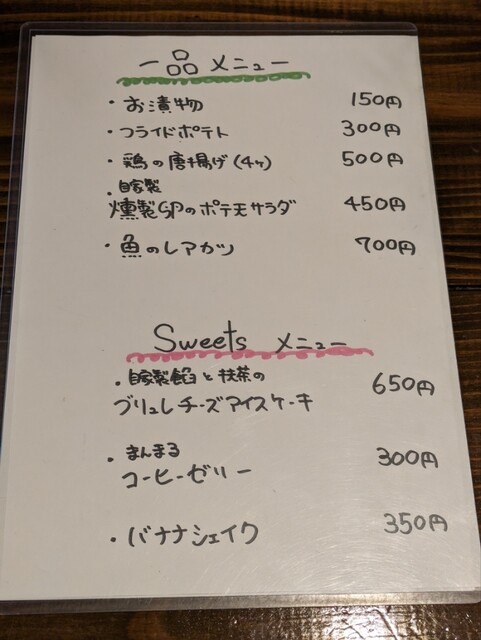 一品メニュー
・お漬物 150円
・フライドポテト 300円
・鶏の唐揚げ(4ヶ) 500円
・自家製
燻製GPのポテ玉サラダ 450円
・魚のレアカツ 700円
Sweets メニュー
・自家製餡と抹茶の
ブリュレチーズアイスケーキ 650円
・まんまる
コーヒーゼリー 300円
・バナナシェイク 350円